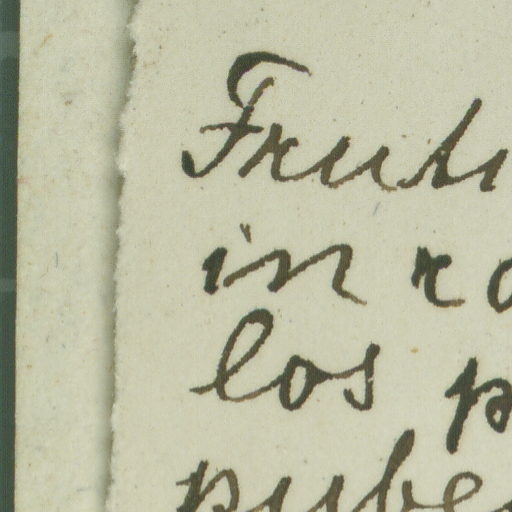 Fruti
in ro
los p
pube